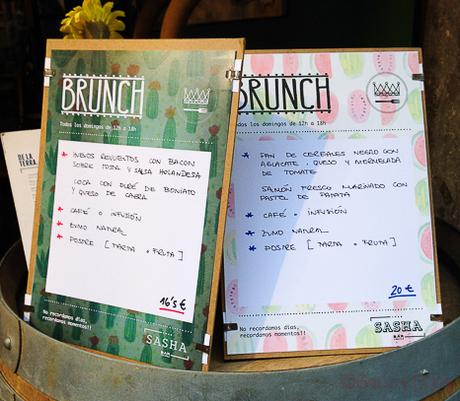 BRUNCH
Todos los domingos de 12h a 18h
* HUEVOS REVUELTOS CON BACON
SOBRE TOSTA Y SALSA HOLANDESA
COCA CON PURÉ DE BONIATO
Y QUESO DE CABRA
* CAFÉ O INFUSIÓN
* ZUMO NATURAL
* POSTRE [TARTA O FRUTA]
16'5 €
No recordamos días,
recordamos momentos!!
SASHA
BAR
BRUNCH
Todos los domingos de 12h a 18h
* PAN DE CEREALES NEGRO CON
AGUACATE, QUESO Y MERMELADA
DE TOMATE
SALMÓN FRESCO MARINADO CON
PASTEL DE PATATA
* CAFÉ O INFUSIÓN
* ZUMO NATURAL
* POSTRE [TARTA O FRUTA]
20 €
No recordamos días,
recordamos momentos!!
SASHA
BAR